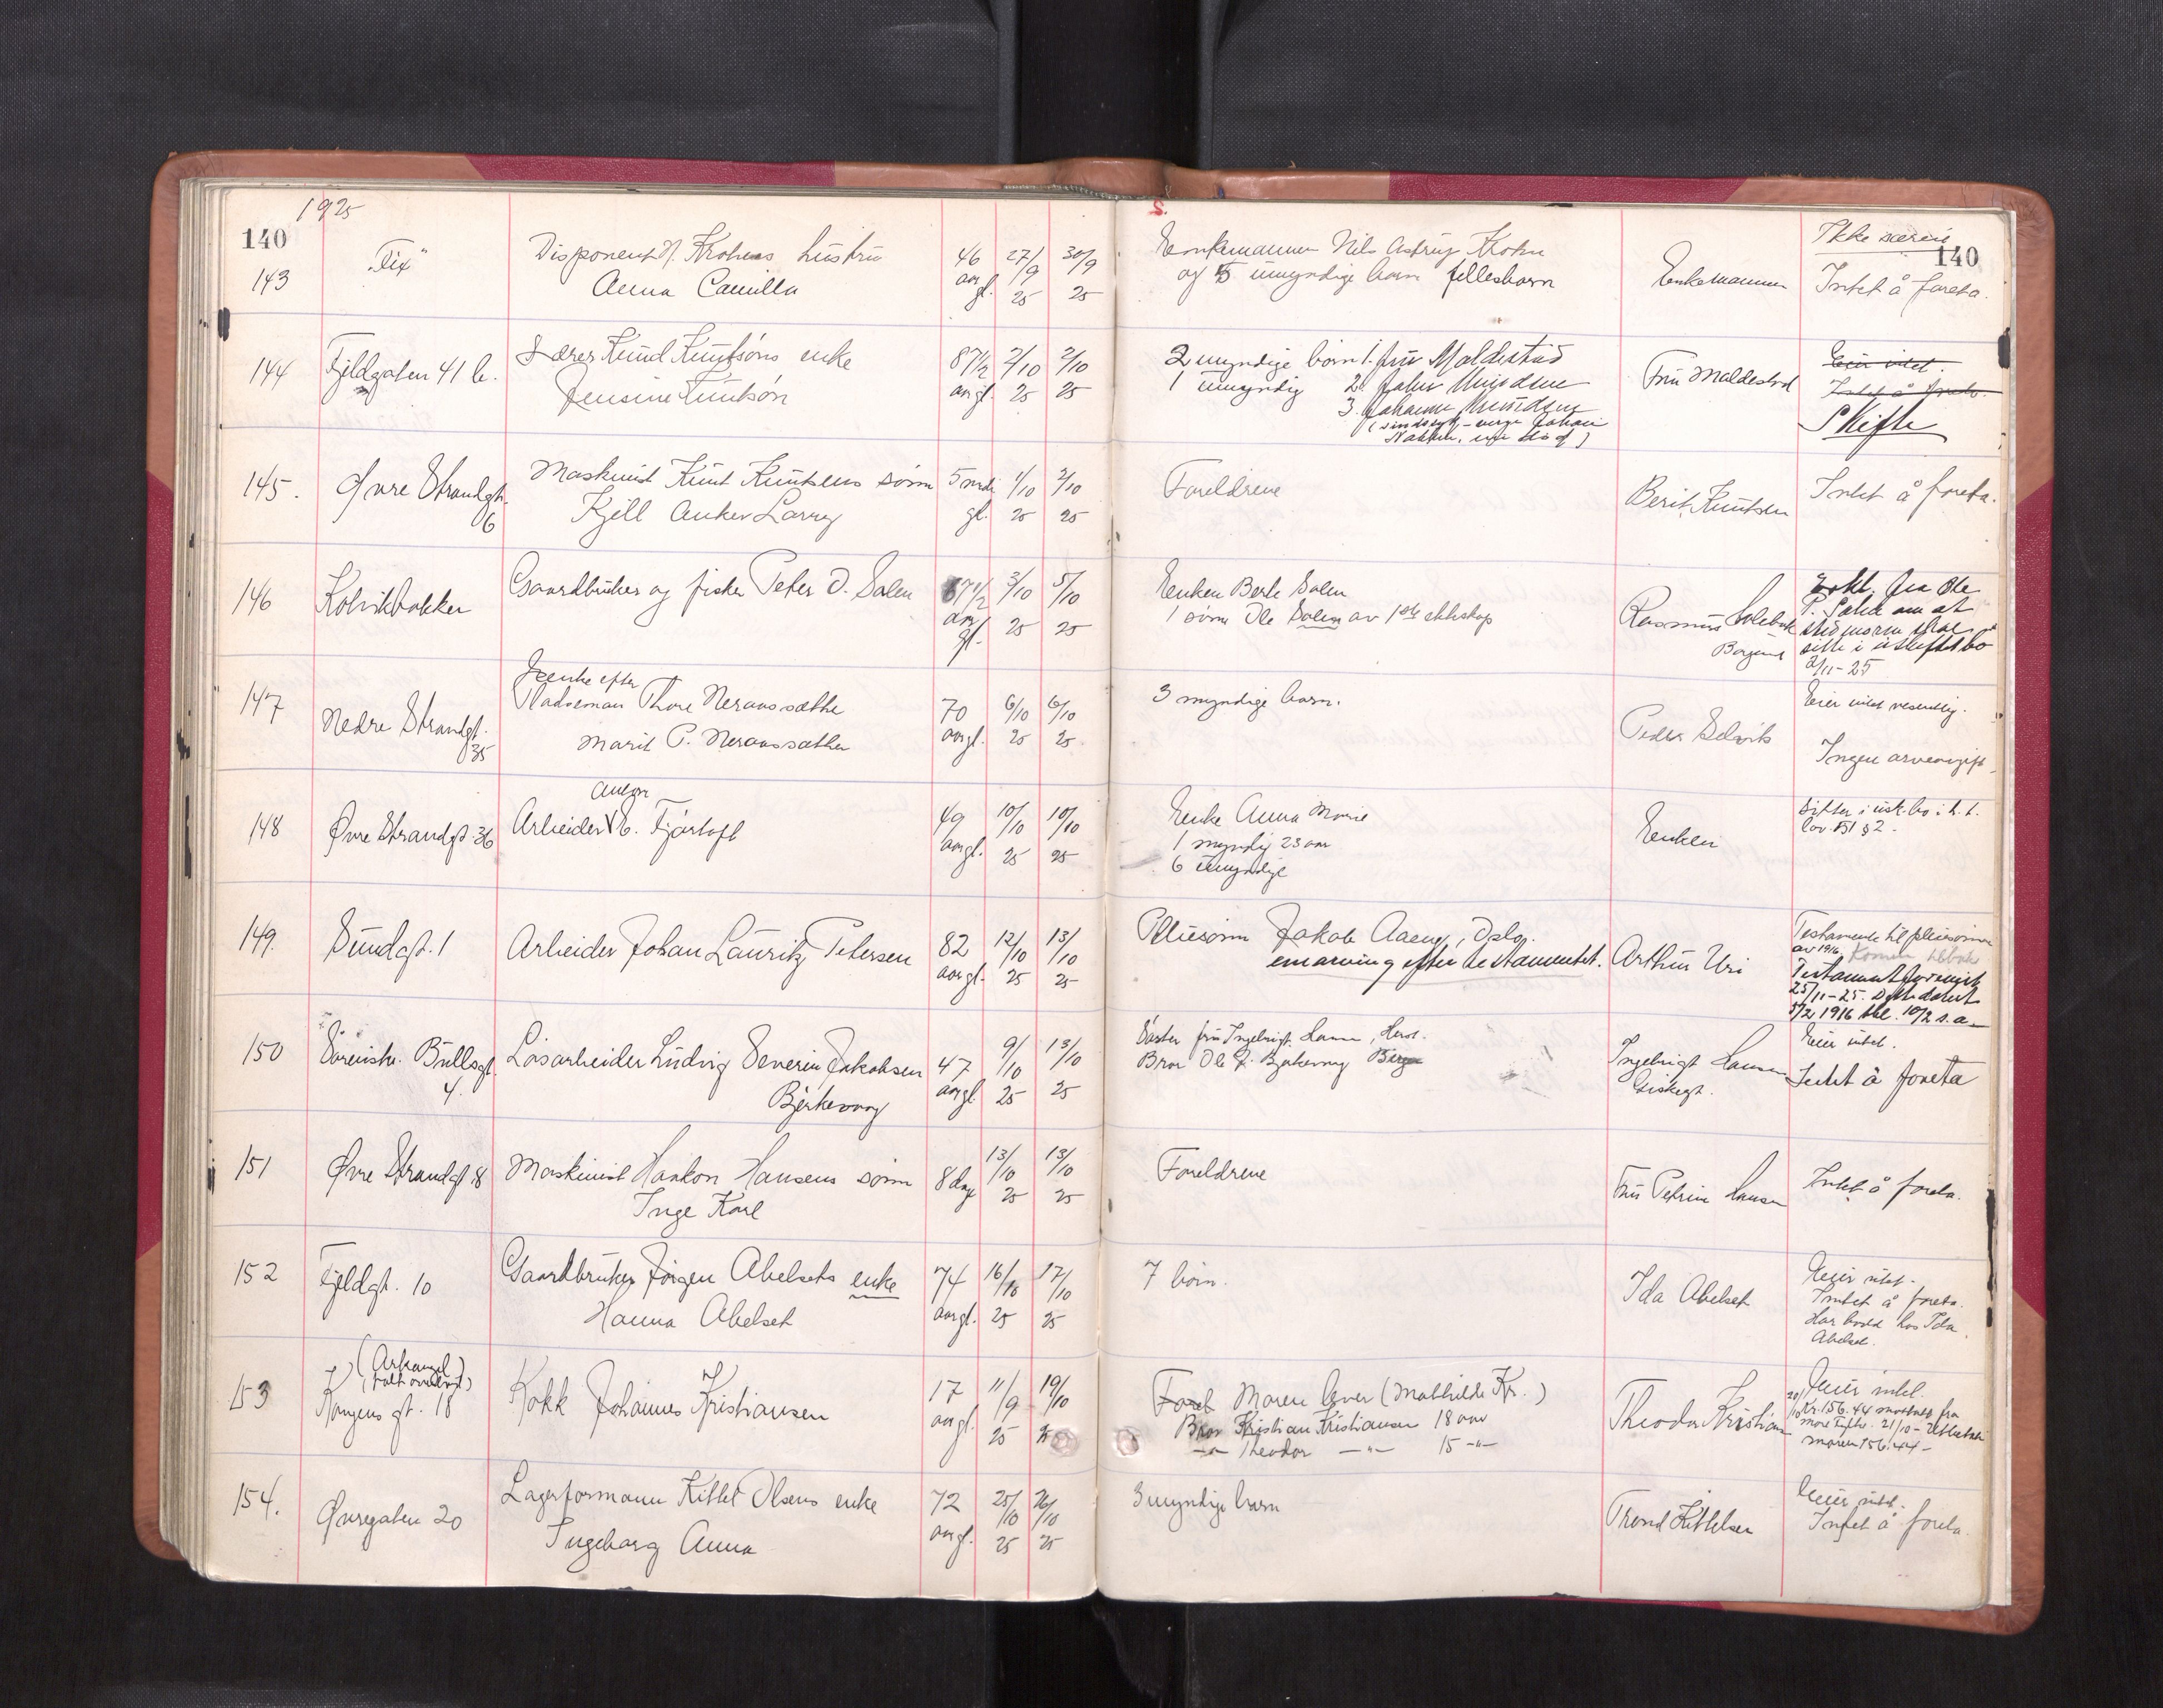 1925
140
140
143
"Fix"
Disponent N. Krohns hustru
Anna Camilla
46 aar gl.
27/9 25
30/9 25
Enkemannen Nils Astrup Krohn
og 5 umyndige barn fellesbarn
Enkemannen
Ikke særeie
Intet å foreta.
144
Fjeldgaten 41 b.
Lærer Knud Knutsöns enke
Jensine Knutsön
87 1/2 aar gl.
2/10 25
2/10 25
2 myndige børn 1. fru Maldestad
1 umyndig 2. Johan
3. Johanne
Fru Maldestad
Eier intet.
Intet å foreta.
Skifte
145.
Øvre Strandgt. 6
Maskinist Knut Knutsens sönn
Kjell Anker Larry
5 mdr gl.
1/10 25
2/10 25
Foreldrene
Berit Knutsen
Intet å foreta.
146
Kolvikbakken
Gaardbruker og fisker Peter O. Salen
67 1/2 aar gl.
3/10 25
5/10 25
Enken Berte Salen
1 sönn Ole Salen av 1ste ekteskap
Rasmus
Borgund
fra Ole
P. Salen om at
stedmoren skal
sitte i uskiftet bo
2/11-25
147
Nedre Strandgt. 35
enke efter
Pladseman Thore Neraassæthe
Marit P. Neraassæther
70 aar gl.
6/10 25
6/10 25
3 myndige barn.
Peder Selvik
Eier intet vesentlig.
Ingen arveavgift
148
Øvre Strandgt. 36
Anton
Arbeider E. Fjörtoft
49 aar gl.
10/10 25
10/10 25
Enke Anna Marie
1 myndig 23 aar
6 umyndige
Enken
Sitter i usk. bo i h. t.
lov § 2.
149.
Sundgt. 1
Arbeider Johan Lauritz Petersen
82 aar gl.
12/10 25
13/10 25
Pleiesönn Jakob Aaeng, Oslo.
enarving efter testamentet.
Arthur Uri
Testamente til pleiesønnen
av 1916.
Testament
25/11-25. Dett datert
5/2 1916 10/2 s.a.
150
Sörenskr. Bullsgt. 4.
Lösarbeider Ludvig Severin Jakobsen
Bjerkevaag
47 aar gl.
9/10 25
13/10 25
Söster fru Ingebrigt Hansen, Her.
Bror Ole J. Bjerkevaag
Ingebrigt Hansen
Giskegt.
Eier intet.
Intet å foreta
151
Øvre Strandgt 18
Maskinist Haakon Hansens sönn
Inge Karl
8 dage
13/10 25
13/10 25
Foreldrene
Fru Petrine Hansen
Intet å foreta.
152
Fjeldgt. 10
Gaardbruker Jörgen Abelsets enke
Hanna Abelset
74 aar gl.
16/10 25
17/10 25
7 börn.
Ida Abelset
Eier intet.
Intet å foreta.
Har bodd hos Ida
Abelset.
153
(Arkangel)
(falt overbord)
Kongens gt. 18
Kokk Johannes Kristiansen
17 aar gl.
11/9 25
19/10 25
Foreld Moren lever (Mathilde Kr.)
Bror Kristian Kristiansen 18 aar
-"- Theodor -"- 15 -"-
Theodor Kristiansen
Eier intet.
20/10 Kr. 156.44 mottatt fra
21/10 - Utbetalt
moren 156.44 -
154.
Øvregaten 20
Lagerformann Kittel Olsens enke
Ingeborg Anna
72 aar gl.
25/10 25
26/10 25
3 myndige barn
Trond Kittelsen
Eier intet.
Intet å foreta.